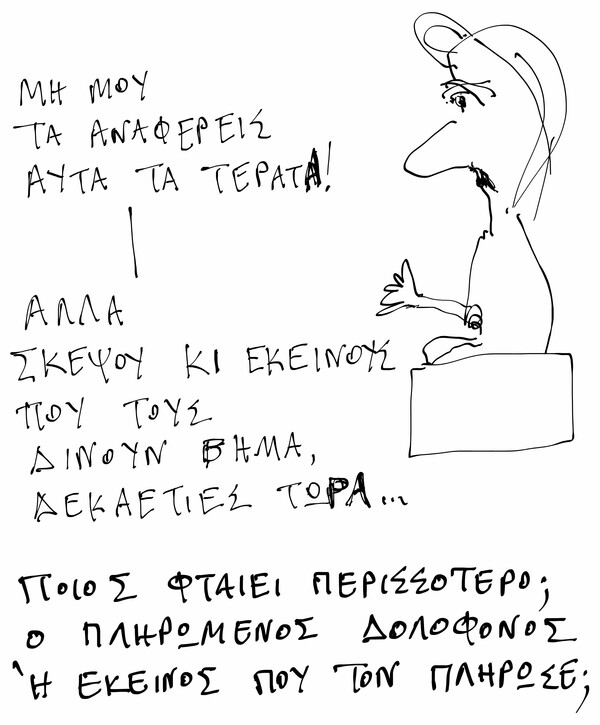 ΜΗ ΜΟΥ
ΤΑ ΑΝΑΦΕΡΕΙΣ
ΑΥΤΑ ΤΑ ΤΕΡΑΤΑ!
ΑΛΛΑ
ΣΚΕΨΟΥ ΚΙ ΕΚΕΙΝΟΥΣ
ΠΟΥ ΤΟΥΣ
ΔΙΝΟΥΝ ΒΗΜΑ,
ΔΕΚΑΕΤΙΕΣ ΤΩΡΑ...
ΠΟΙΟΣ ΦΤΑΙΕΙ ΠΕΡΙΣΣΟΤΕΡΟ;
Ο ΠΛΗΡΩΜΕΝΟΣ ΔΟΛΟΦΟΝΟΣ
Ή ΕΚΕΙΝΟΣ ΠΟΥ ΤΟΝ ΠΛΗΡΩΣΕ;